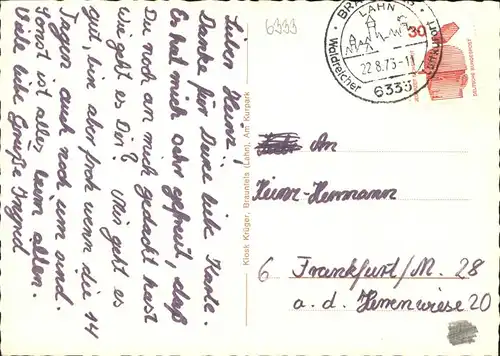 Lieber Heinz!
Danke für Deine liebe Karte.
Es hat mich sehr gefreut, daß
Du noch an mich gedacht hast
Wie geht es Dir? Mir geht es
gut, bin aber froh wenn die 14
Tagen auch noch um sind.
Sonst ist alles beim alten.
Viele liebe Grüße Ingrid
Kiosk Krüger, Braunfels (Lahn), Am Kurpark
6333
LAHN
22.8.73-11
6333
Luftkurort
30
DEUTSCHE BUNDESPOST
An
Heinz-Hermann
6 Frankfurt/M. 28
a. d. Herrenwiese 20